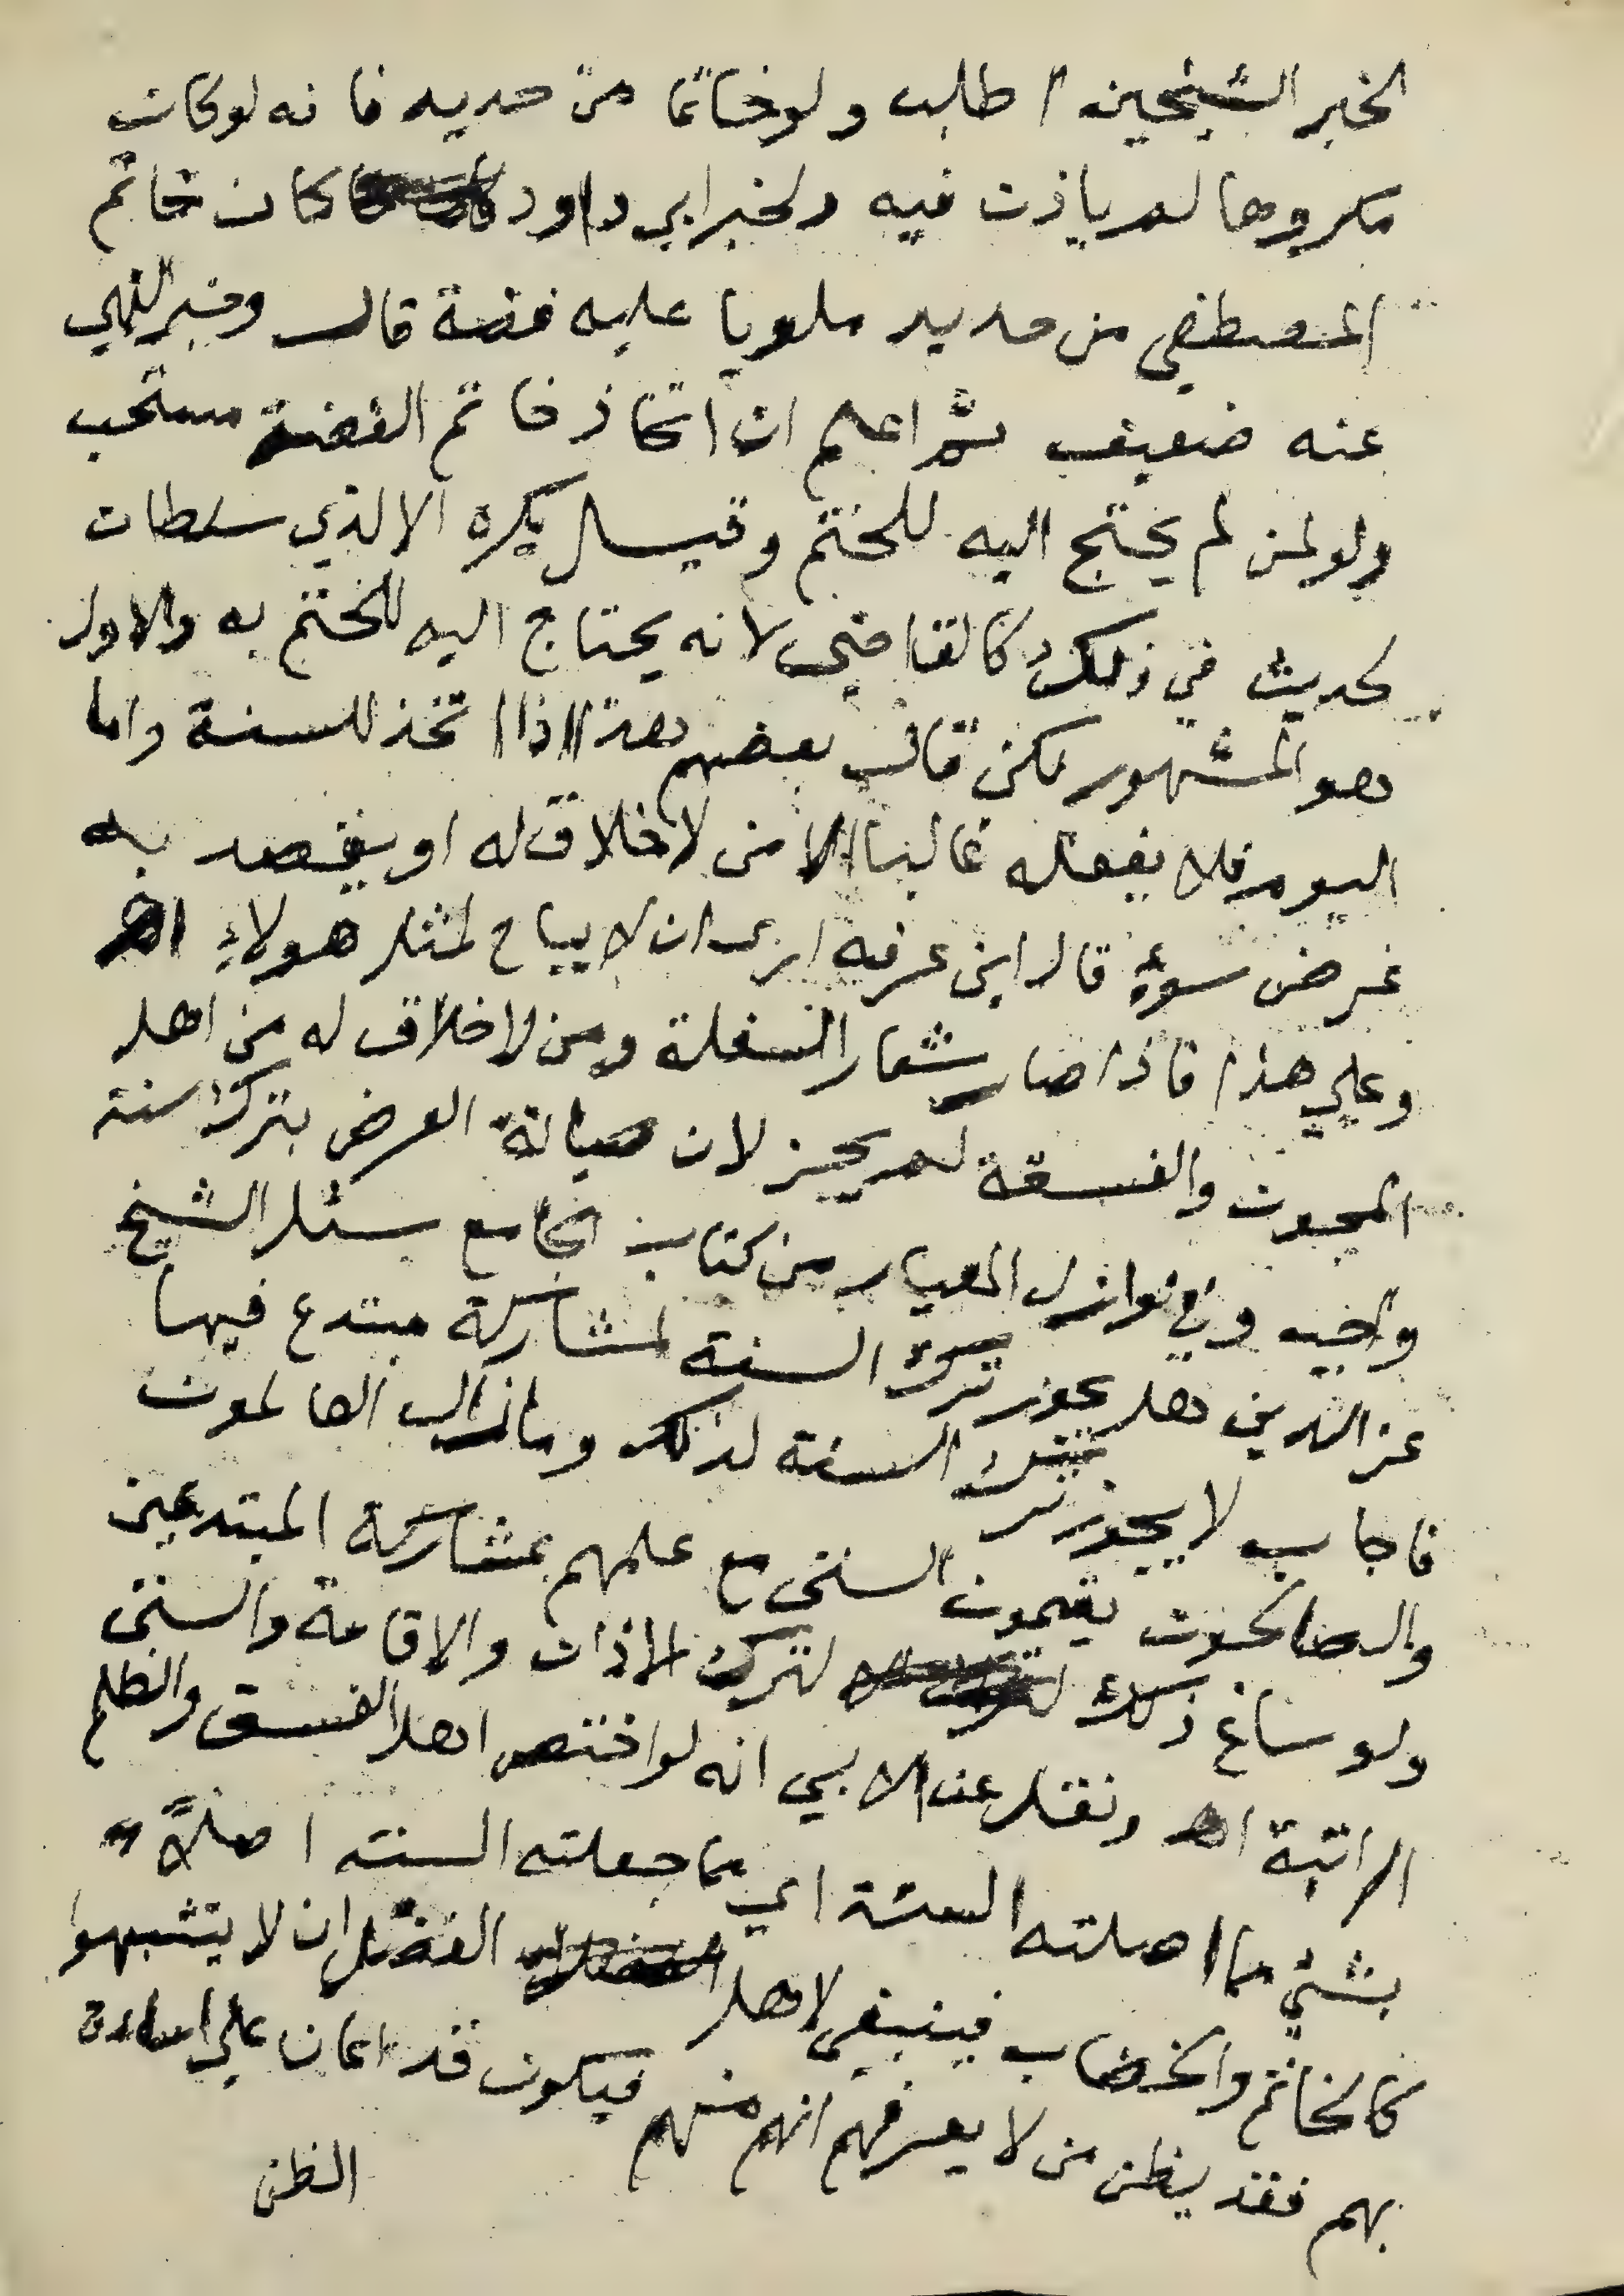 لخبر الشيخين اطلب ولو خاتما من حديد فانه لو كان
مكروها لم ياذن فيه ولخبر ابي داود كان خاتم
المصطفي من حديد ملويا عليه فضة قال وخبر النهي
عنه ضعيف ثم اعلم ان اتخاذ خاتم الفضة مستحب
ولو لمن لم يحتج اليه للختم وقيل يكره الا لذي سلطان
لحديث في ذلك وكالقاضي لانه يحتاج اليه للختم به والاول
هو المشهور لكن قال بعضهم هذا اذا اتخذ للسنة واما
اليوم فلا يفعله غالبا الا من لا خلاق له او يقصد به
غرض سوءٍ قال ابن عرفه اري ان لا يباح لمثل هولاءِ اهـ
وعلي هذا فاذا صار شعار السفلة ومن لا خلاق له من اهل
المجون والفسقة لم يجز لان صيانة العرض بترك سنة
واجبه وفي نوازل المعيار من كتاب الجامع سئل الشيخ
عز الدين هل يجوز ترك السنة لمشاركة مبتدع فيها
فاجاب لا يجوز ترك السنة لذلك وما زال العالمون
والصالحون يقيمون السنن مع علمهم بمشاركة المبتدعين
ولو ساغ ذلك لترك الاذان والاقامة والسنن
الراتبة اهـ ونقل عن الابي انه لو اختص اهل الفسق والظلم
بشيءٍ مما اصلته السنة اي مما جعلته السنة اصلاً
كالخاتم والخضاب فينبغي لاهل الفضل ان لا يتشبهوا
بهم فقد يظن من لا يعرفهم انهم منهم فيكون قد اعان علي اساءة
الظن